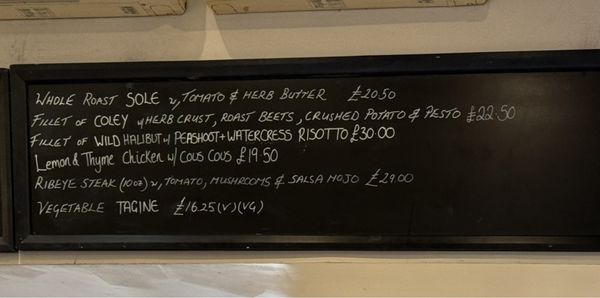 WHOLE ROAST SOLE w, TOMATO & HERB BUTTER £20.50
FILLET OF COLEY w HERB CRUST, ROAST BEETS, CRUSHED POTATO & PESTO £22.50
FILLET OF WILD HALIBUT w/ PEASHOOT + WATERCRESS RISOTTO £30.00
Lemon & Thyme Chicken w/ Cous Cous £19.50
RIBEYE STEAK (10oz) w, TOMATO, MUSHROOMS & SALSA MOJO £29.00
VEGETABLE TAGINE £16.25 (V) (VG)